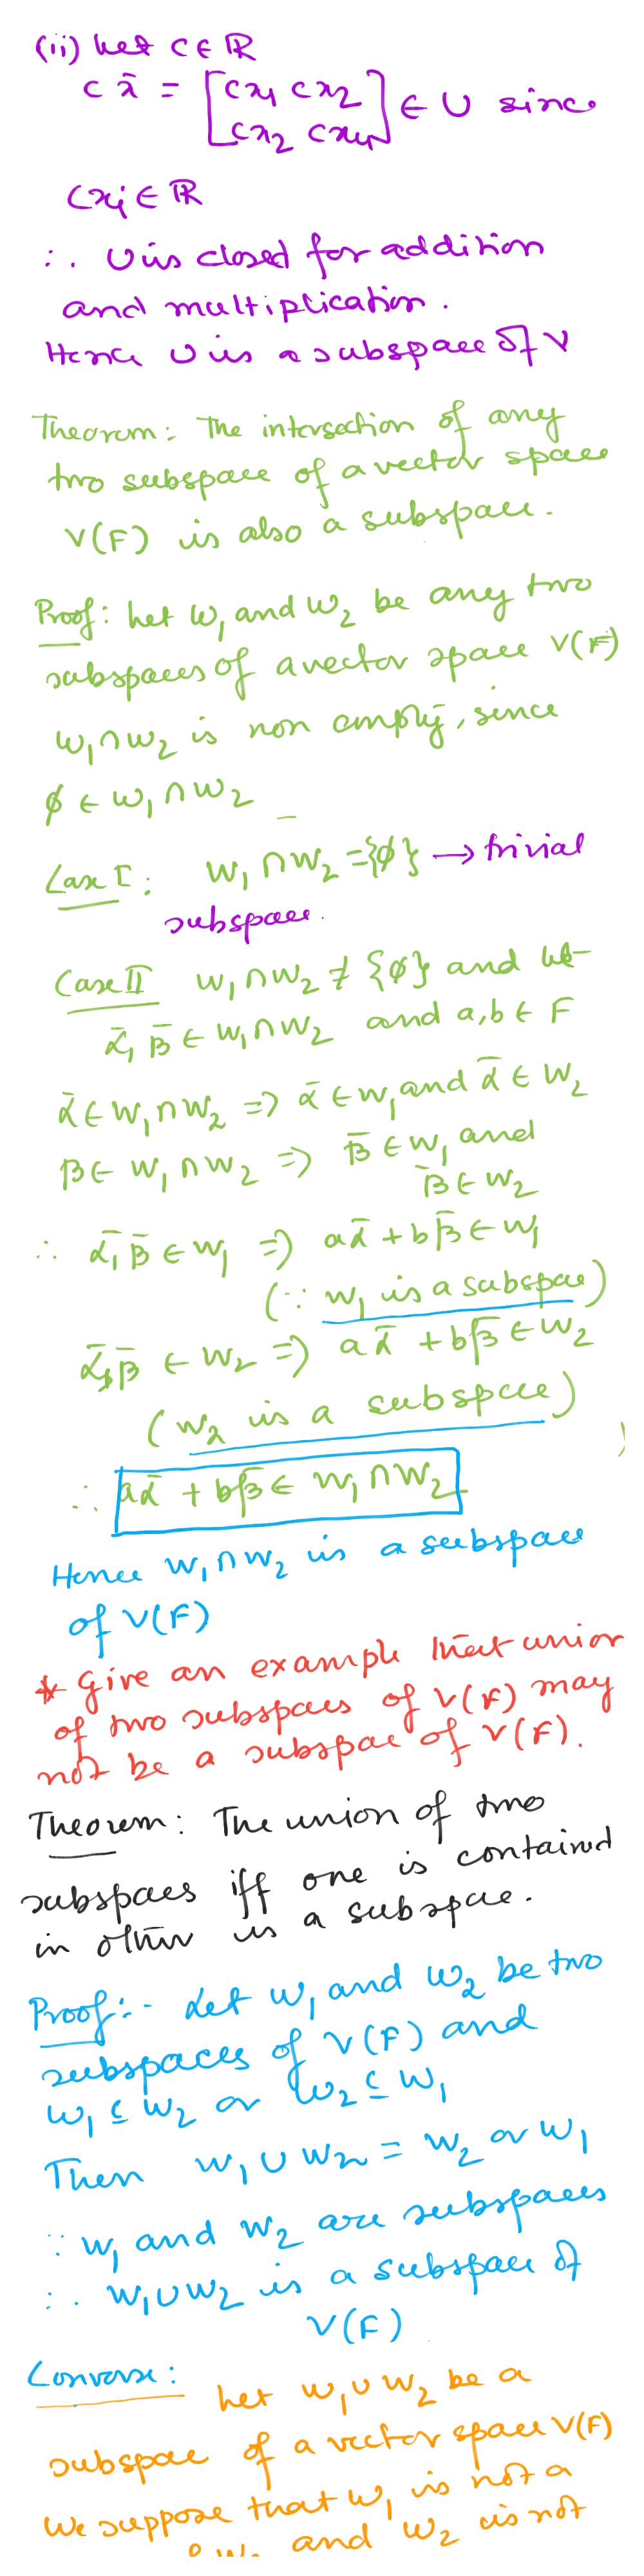 (ii) Let c ∈ ℝ
c x̄ = [cx₁ cx₂
cx₂ cx₄] ∈ U since
cxᵢ ∈ ℝ
∴ U is closed for addition
and multiplication.
Hence U is a subspace of V
Theorem: The intersection of any
two subspace of a vector space
V(F) is also a subspace.
Proof: Let W₁ and W₂ be any two
subspaces of a vector space V(F)
W₁∩W₂ is non empty, since
ϕ ∈ W₁∩W₂
Case I: W₁∩W₂ = {ϕ} → trivial
subspace.
Case II W₁∩W₂ ≠ {ϕ} and let
ᾱ, β̄ ∈ W₁∩W₂ and a,b ∈ F
ᾱ ∈ W₁∩W₂ => ᾱ ∈ W₁ and ᾱ ∈ W₂
β ∈ W₁∩W₂ => β̄ ∈ W₁ and
β̄ ∈ W₂
∴ ᾱ, β̄ ∈ W₁ => aᾱ + bβ̄ ∈ W₁
(∵ W₁ is a subspace)
ᾱ, β̄ ∈ W₂ => aᾱ + bβ̄ ∈ W₂
(W₂ is a subspce)
∴ aᾱ + bβ̄ ∈ W₁∩W₂
Hence W₁∩W₂ is a subspace
of V(F)
* Give an example that union
of two subspaces of V(F) may
not be a subspac of V(F).
Theorem: The union of two
subspaes iff one is contained
in other is a subspae.
Proof:- Let W₁ and W₂ be two
subspaces of V(F) and
W₁ ⊆ W₂ or W₂ ⊆ W₁
Then W₁ ∪ W₂ = W₂ or W₁
∵ W₁ and W₂ are subspaces
∴ W₁∪W₂ is a subspace of
V(F)
Converse:
Let W₁∪W₂ be a
subspae of a vector space V(F)
We suppose that W₁ is not a
and W₂ is not